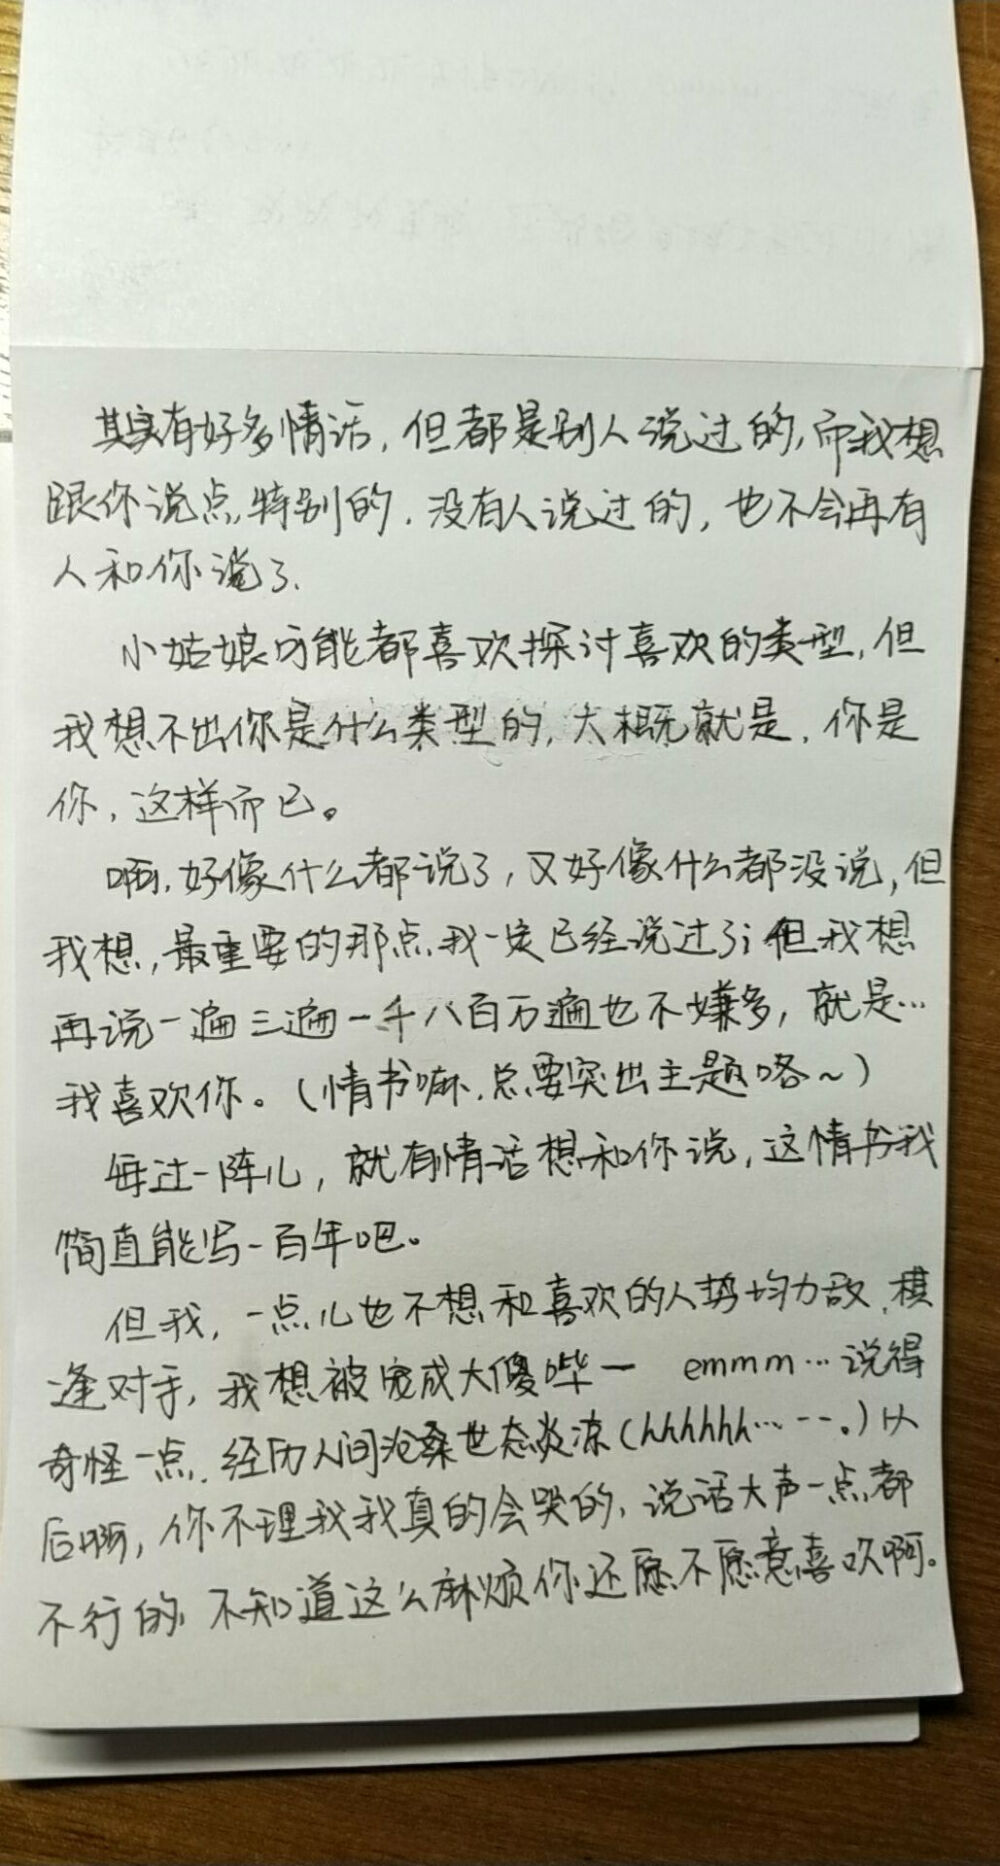 其实有好多情话，但都是别人说过的，而我想
跟你说点特别的，没有人说过的，也不会再有
人和你说了．
小姑娘可能都喜欢探讨喜欢的类型，但
我想不出你是什么类型的，大概就是，你是
你，这样而已。
啊，好像什么都说了，又好像什么都没说，但
我想，最重要的那点我一定已经说过了；但我想
再说一遍三遍一千八百万遍也不嫌多，就是…
我喜欢你。（情书嘛，总要突出主题咯～）
每过一阵儿，就有情话想和你说，这情书我
简直能写一百年吧。
但我，一点儿也不想和喜欢的人势均力敌，棋
逢对手，我想被宠成大傻哔一 emmm…说得
奇怪一点，经历人间沧桑世态炎凉（hhhhhh…--。）以
后啊，你不理我我真的会哭的，说话大声一点都
不行的，不知道这么麻烦你还愿不愿意喜欢啊。